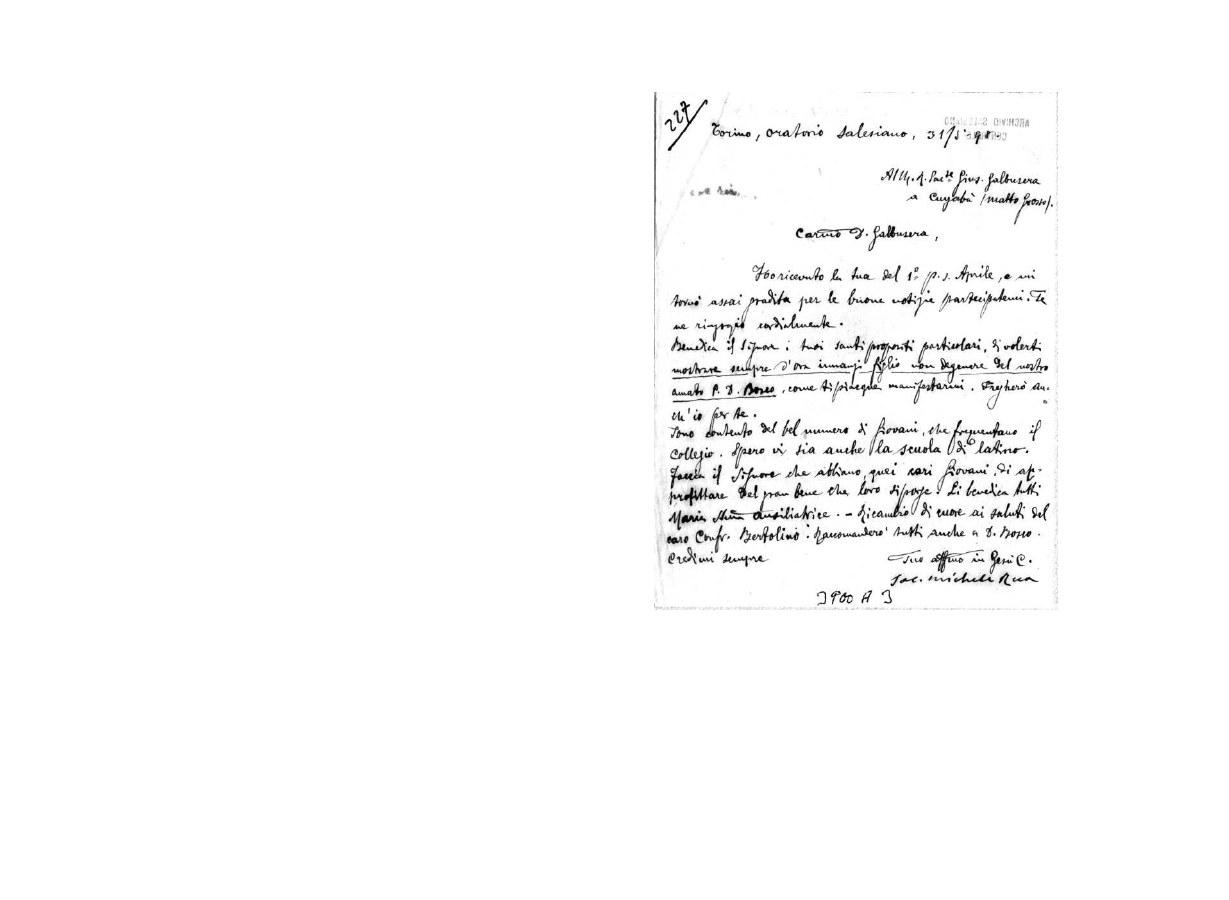 227
Torino, Oratorio Salesiano, 31/5
Al M. R. Sac.te Gius. Galbusera
a Cuyabà (Matto Grosso).
Car.mo D. Galbusera,
Ho ricevuto la tua del 1º p. s. Aprile, e mi
tornò assai gradita per le buone notizie partecipatemi. Te
ne ringrazio cordialmente.
Benedica il Signore i tuoi santi propositi particolari, di volerti
mostrare sempre d'ora innanzi figlio non degenere del nostro
amato P. D. Bosco, come ti piacque manifestarmi. Pregherò an-
ch'io per te.
Sono contento del bel numero di Giovani, che frequentano il
Collegio. Spero vi sia anche la scuola di latino.
Faccia il Signore che abbiano, quei cari Giovani, di ap-
profittare del gran bene che loro si porge. Li benedica tutti
Maria Ausiliatrice. - Ricambio di cuore ai saluti del
caro Confr. Bertolino: Raccomanderò tutti anche a D. Bosco.
Credimi sempre
Tuo aff.mo in Gesù C.
Sac. Michele Rua
3900 A 3